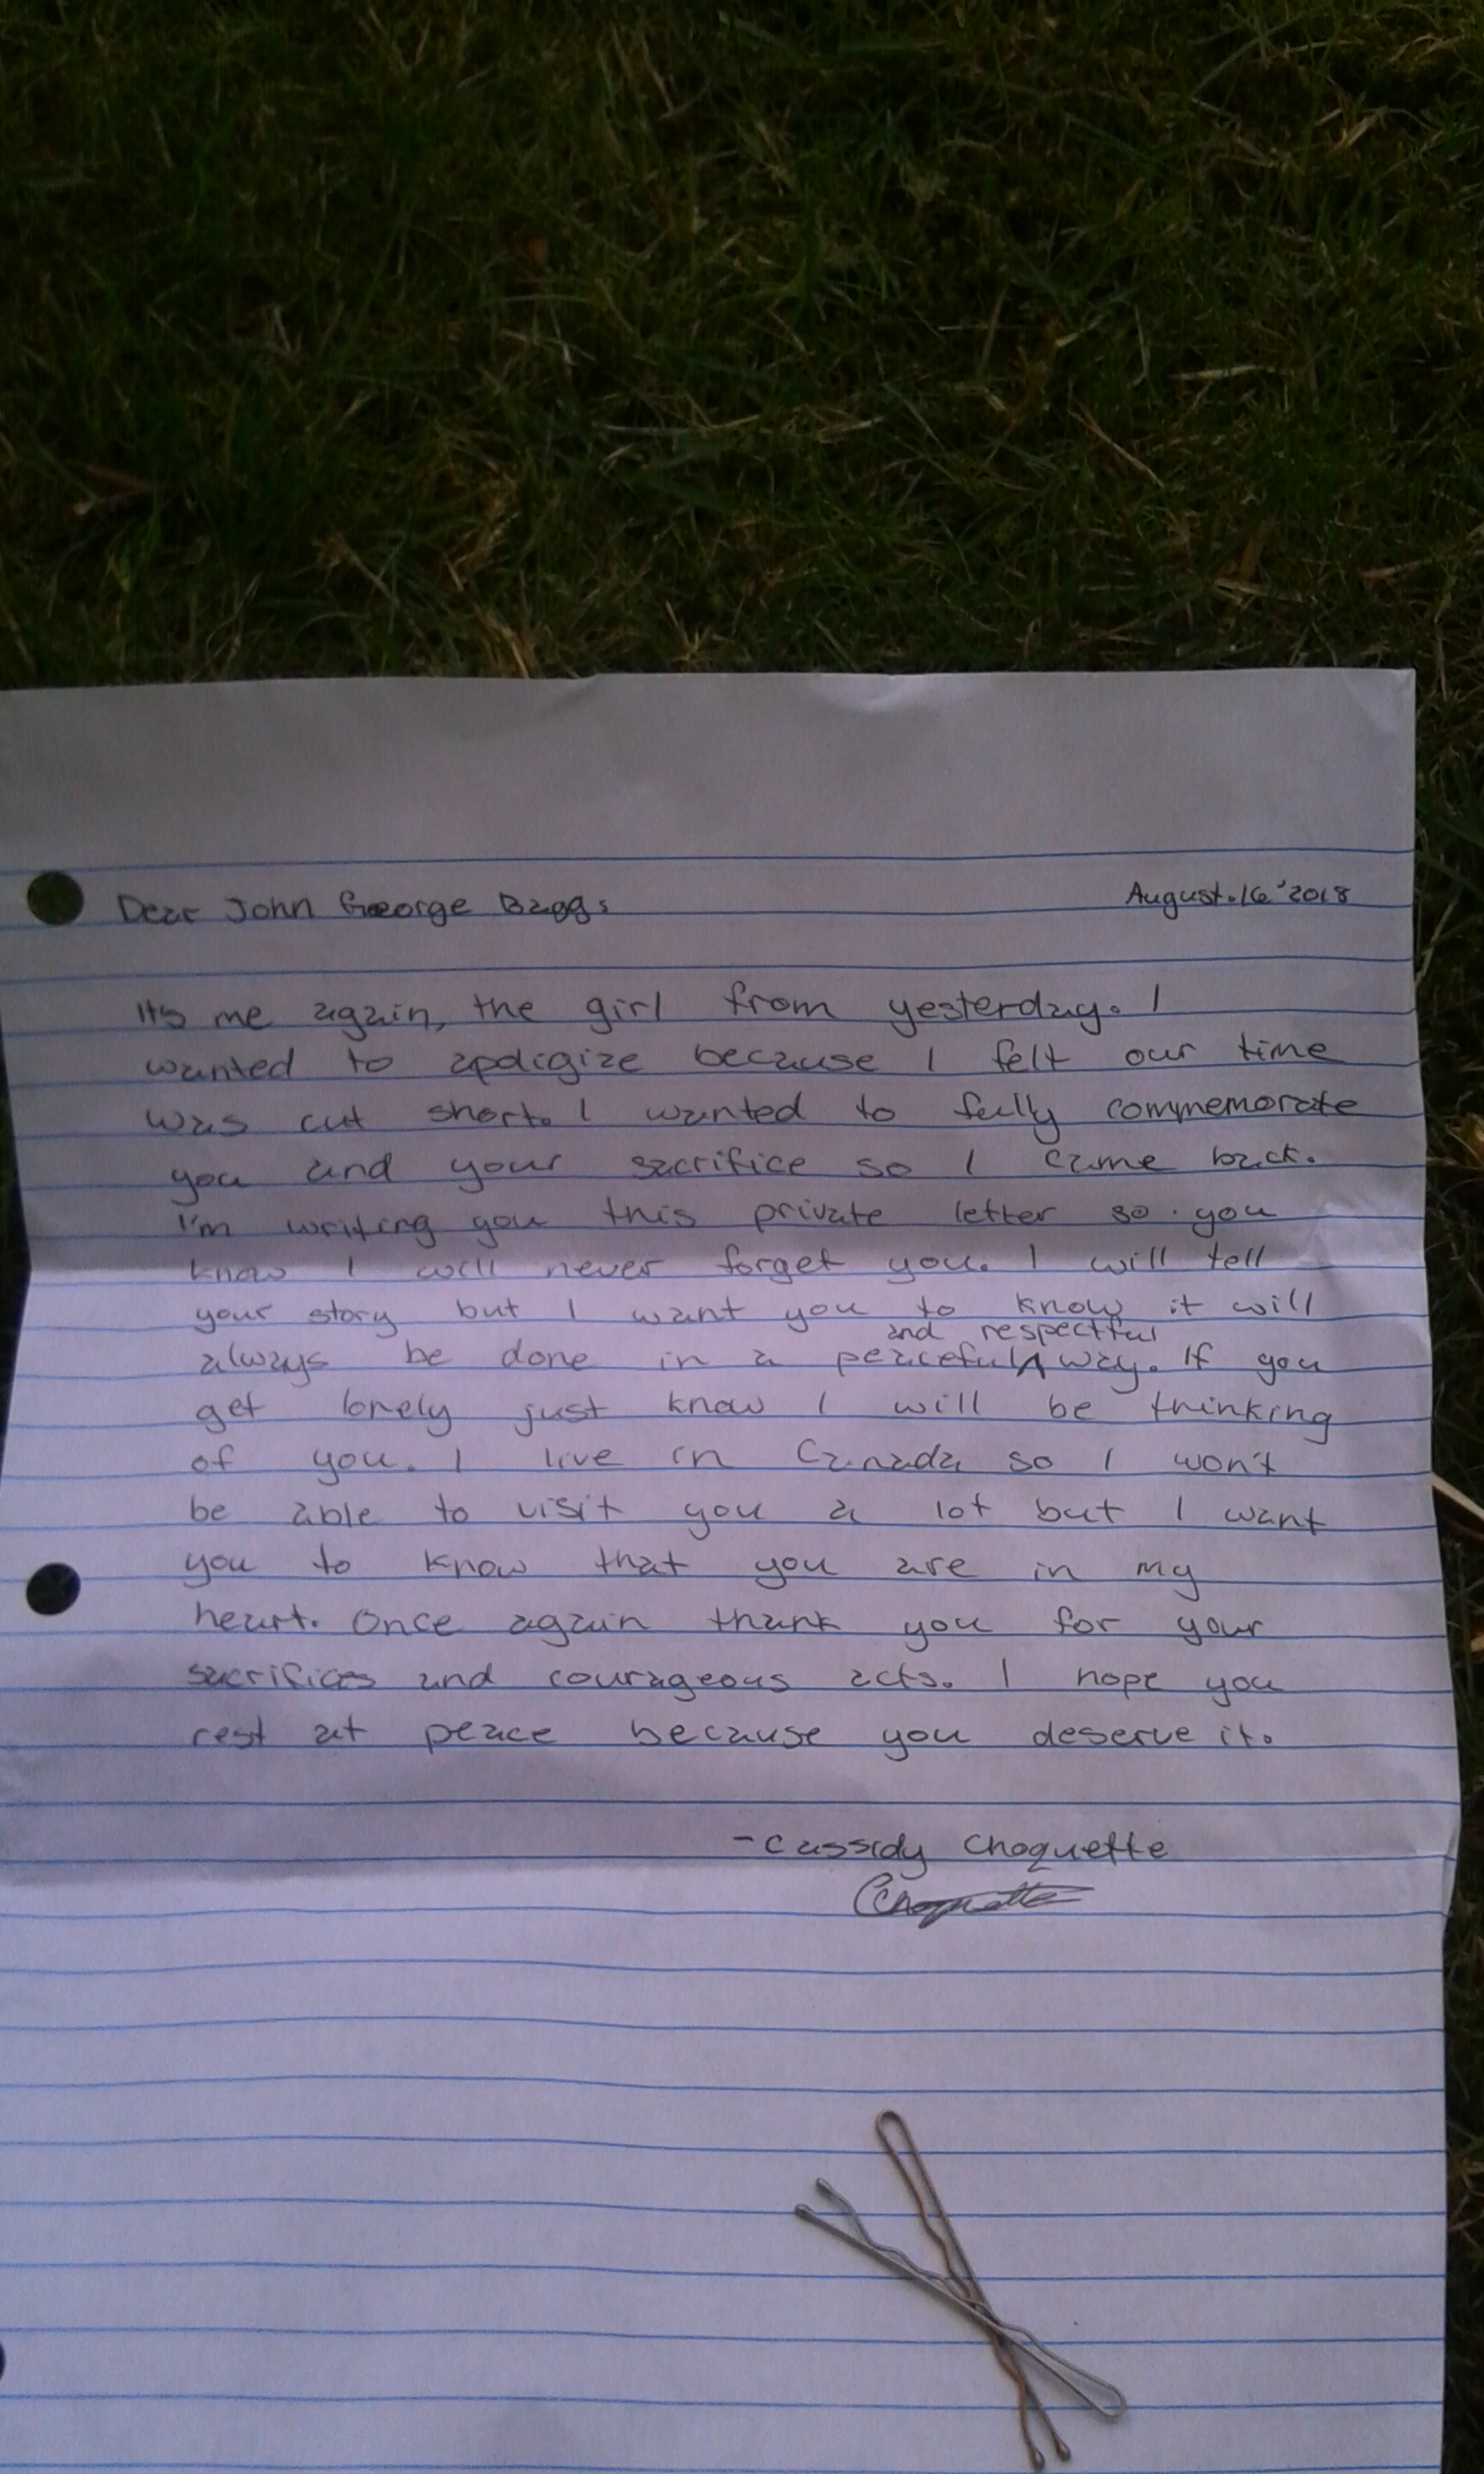 Dear John George Baggs
August.16'2018
It's me again, the girl from yesterday. I
wanted to apoligize because I felt our time
was cut short. I wanted to fully commemorate
you and your sacrifice so I came back.
I'm writing you this private letter so you
know I will never forget you. I will tell
your story but I want you to know it will
and respectful
always be done in a peaceful ^ way. If you
get lonely just know I will be thinking
of you. I live in Canada so I won't
be able to visit you a lot but I want
you to know that you are in my
heart. Once again thank you for your
sacrifices and courageous acts. I hope you
rest at peace because you deserve it.
-Cassidy Choquette
CChoquette